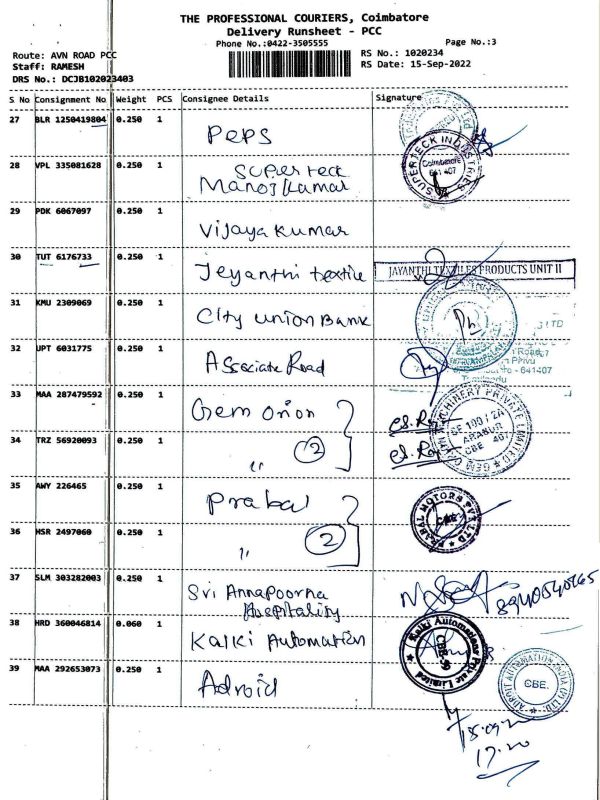 THE PROFESSIONAL COURIERS, Coimbatore
Delivery Runsheet - PCC
Phone No.:0422-3505555
Page No.:3
Route: AVN ROAD PCC
RS No.: 1020234
Staff: RAMESH
RS Date: 15-Sep-2022
DRS No.: DCJB102023403
S No Consignment No Weight PCS Consignee Details Signature
27 BLR 1250419804 0.250 1 Peps
28 VPL 335081628 0.250 1 Superteck
Manoj Kumar
SUPERTECK INDUSTRIES
Coimbatore
641 407
29 PDK 6067097 0.250 1 Vijaya Kumar
30 TUT 6176733 0.250 1 Jeyanthi textile
JAYANTHI TEXTILES PRODUCTS UNIT II
31 KMU 2309069 0.250 1 City Union Bank
32 UPT 6031775 0.250 1 Associate Road
641407
33 MAA 287479592 0.250 1 Gem Orion
34 TRZ 56920093 0.250 1 " 2
SF 100/2A
ARASUR
CBE 407
MACHINERY PRIVATE LIMITED
35 AWY 226465 0.250 1 Prabal
36 HSR 2497060 0.250 1 " 2
PRABAL MOTORS PVT LTD
CBE
37 SLM 303282003 0.250 1 Sri Annapoorna
Hospitality
38 HRD 360046814 0.060 1 Kalki Automation
Kalki Automations Private Limited
39 MAA 292653073 0.250 1 Adroid
CBE.
17.20